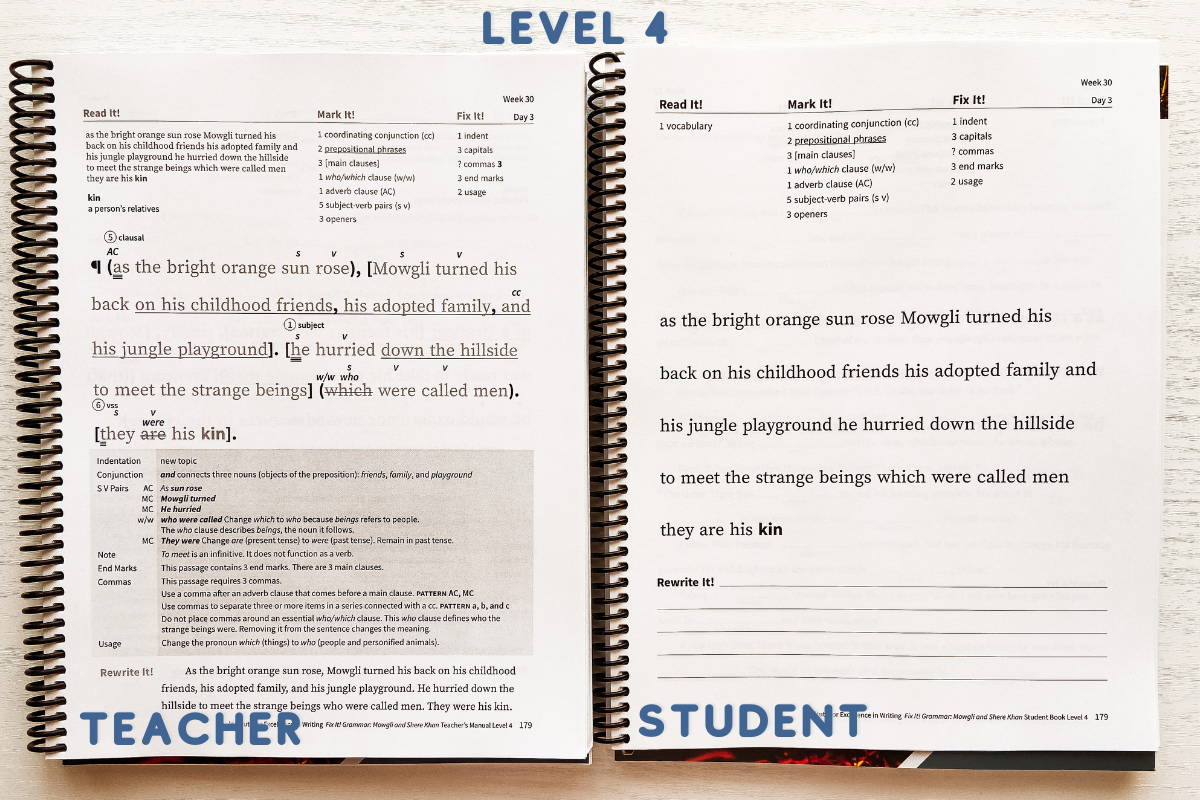 LEVEL 4
Week 30
Read It! Mark It! Fix It! Day 3
as the bright orange sun rose Mowgli turned his
back on his childhood friends his adopted family and
his jungle playground he hurried down the hillside
to meet the strange beings which were called men
they are his kin
kin
a person's relatives
1 coordinating conjunction (cc)
2 prepositional phrases
3 [main clauses]
1 who/which clause (w/w)
1 adverb clause (AC)
5 subject-verb pairs (s v)
3 openers
1 indent
3 capitals
? commas 3
3 end marks
2 usage
5 clausal
AC s v s v
¶ (as the bright orange sun rose), [Mowgli turned his
cc
back on his childhood friends, his adopted family, and
1 subject
s v
his jungle playground]. [he hurried down the hillside
s v v
w/w who
to meet the strange beings] (which were called men).
6 vss
s v
were
[they are his kin].
Indentation new topic
Conjunction and connects three nouns (objects of the preposition): friends, family, and playground
S V Pairs AC As sun rose
MC Mowgli turned
MC He hurried
w/w who were called Change which to who because beings refers to people.
The who clause describes beings, the noun it follows.
MC They were Change are (present tense) to were (past tense). Remain in past tense.
Note To meet is an infinitive. It does not function as a verb.
End Marks This passage contains 3 end marks. There are 3 main clauses.
Commas This passage requires 3 commas.
Use a comma after an adverb clause that comes before a main clause. PATTERN AC, MC
Use commas to separate three or more items in a series connected with a cc. PATTERN a, b, and c
Do not place commas around an essential who/which clause. This who clause defines who the
strange beings were. Removing it from the sentence changes the meaning.
Usage Change the pronoun which (things) to who (people and personified animals).
Rewrite It! As the bright orange sun rose, Mowgli turned his back on his childhood
friends, his adopted family, and his jungle playground. He hurried down the
hillside to meet the strange beings who were called men. They were his kin.
Writing Fix It! Grammar: Mowgli and Shere Khan Teacher's Manual Level 4 179
TEACHER
Week 30
Read It! Mark It! Fix It! Day 3
1 vocabulary
1 coordinating conjunction (cc)
2 prepositional phrases
3 [main clauses]
1 who/which clause (w/w)
1 adverb clause (AC)
5 subject-verb pairs (s v)
3 openers
1 indent
3 capitals
? commas
3 end marks
2 usage
as the bright orange sun rose Mowgli turned his
back on his childhood friends his adopted family and
his jungle playground he hurried down the hillside
to meet the strange beings which were called men
they are his kin
Rewrite It!
in Writing Fix It! Grammar: Mowgli and Shere Khan Student Book Level 4 179
STUDENT